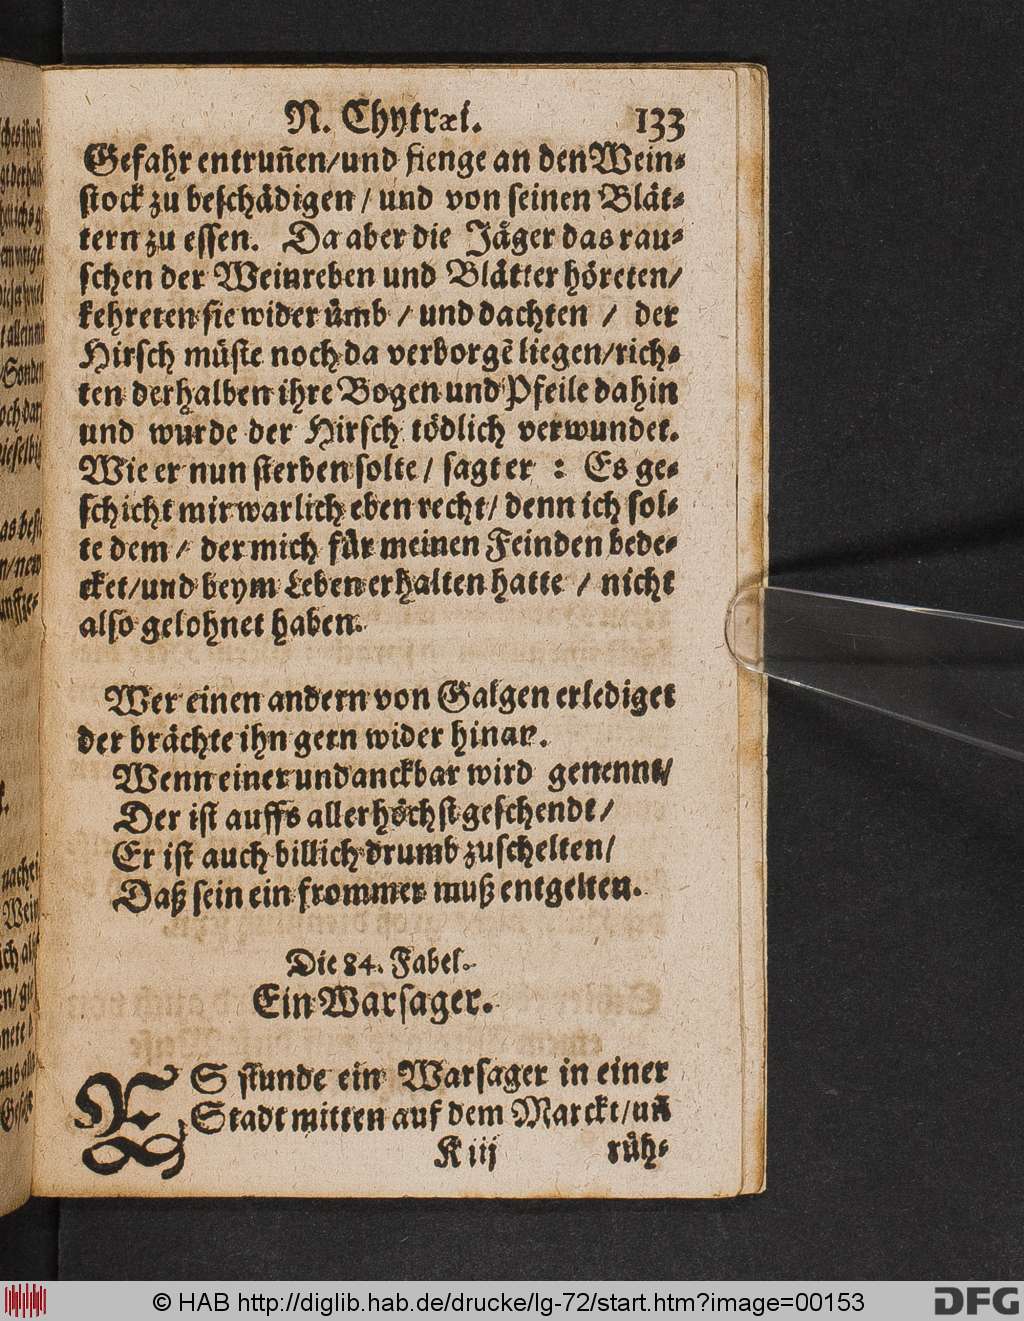 N. Chytræi. 133
Gefahr entruñen/und fienge an den Wein-
stock zu beschädigen / und von seinen Blät-
tern zu essen. Da aber die Jäger das rau-
schen der Weinreben und Blätter höreten/
kehreten sie wider ümb / und dachten / der
Hirsch müste noch da verborgẽ liegen/rich-
ten derhalben ihre Bogen und Pfeile dahin
und wurde der Hirsch tödlich verwundet.
Wie er nun sterben solte / sagt er : Es ge-
schicht mir warlich eben recht/ denn ich sol-
te dem / der mich für meinen Feinden bede-
cket/und beym Leben erhalten hatte / nicht
also gelohnet haben.
Wer einen andern von Galgen erlediget
der brächte ihn gern wider hinan.
Wenn einer undanckbar wird genennt/
Der ist auffs allerhöchst geschendt/
Er ist auch billich drumb zuschelten/
Daß sein ein frommer muß entgelten.
Die 84. Fabel.
Ein Warsager.
ES stunde ein Warsager in einer
Stadt mitten auf dem Marckt/uñ
K iij rüh-
© HAB http://diglib.hab.de/drucke/lg-72/start.htm?image=00153
DFG